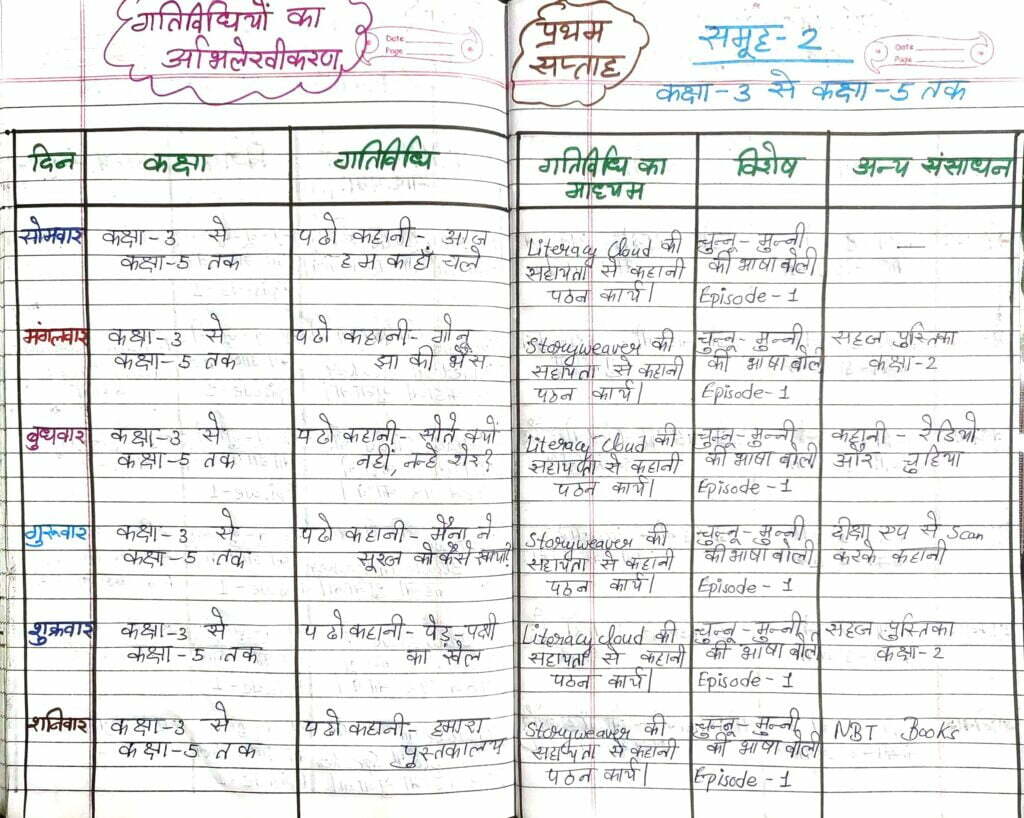 गतिविधियों का
अभिलेखीकरण
Date
Page
प्रथम
सप्ताह
समूह- 2
Date
Page
कक्षा-3 से कक्षा-5 तक
दिन	कक्षा	गतिविधि	गतिविधि का	विशेष	अन्य संसाधन
माध्यम
सोमवार	कक्षा-3 से	पढो कहानी- आज	Literacy Cloud की	चुन्नू-मुन्नी	—
कक्षा-5 तक	हम कहाँ चले	सहायता से कहानी	की भाषा बोली
पठन कार्य।	Episode-1
मंगलवार	कक्षा-3 से	पढो कहानी- गोनू	Storyweaver की	चुन्नू-मुन्नी	सहज पुस्तिका
कक्षा-5 तक	झा की भैंस	सहायता से कहानी	की भाषा बोली	कक्षा-2
पठन कार्य।	Episode-1
बुधवार	कक्षा-3 से	पढो कहानी- सोते क्यों	Literacy Cloud की	चुन्नू-मुन्नी	कहानी - रेडियो
कक्षा-5 तक	नहीं, नन्हे शेर?	सहायता से कहानी	की भाषा बोली	और चुहिया
पठन कार्य।	Episode-1
गुरूवार	कक्षा-3 से	पढो कहानी- मैना ने	Storyweaver की	चुन्नू-मुन्नी	दीक्षा एप से Scan
कक्षा-5 तक	सूरज को कैसे	सहायता से कहानी	की भाषा बोली	करके कहानी
पठन कार्य।	Episode-1
शुक्रवार	कक्षा-3 से	पढो कहानी- पेड़-पक्षी	Literacy cloud की	चुन्नू-मुन्नी	सहज पुस्तिका
कक्षा-5 तक	का खेल	सहायता से कहानी	की भाषा बोली	कक्षा-2
पठन कार्य।	Episode-1
शनिवार	कक्षा-3 से	पढो कहानी- हमारा	Storyweaver की	चुन्नू-मुन्नी	NBT Books
कक्षा-5 तक	पुस्तकालय	सहायता से कहानी	की भाषा बोली
पठन कार्य।	Episode-1